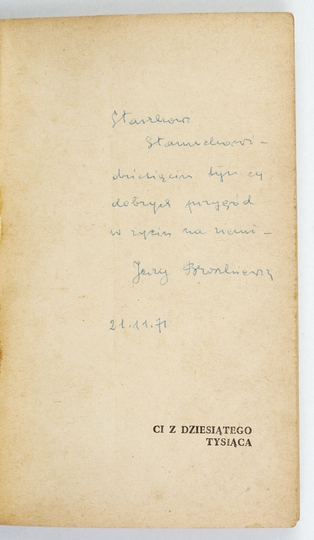 Staszkowi
Stanuchowi -
dziesięciu tysięcy
dobrych przygód
w życiu na ziemi -
Jerzy Broszkiewicz
21.11.71
CI Z DZIESIĄTEGO
TYSIĄCA